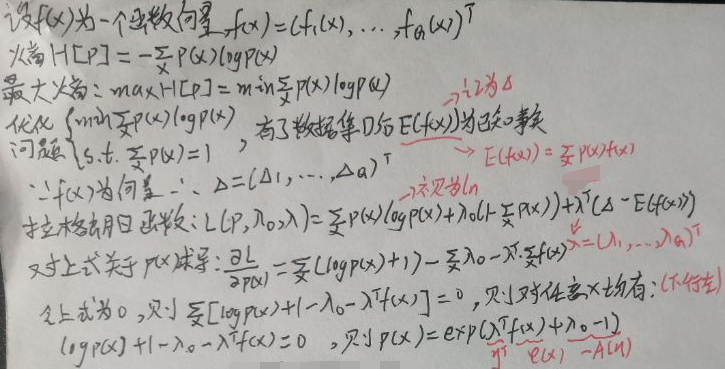 设f(x)为一个函数向量,f(x)=(f₁(x),…,f_Q(x))ᵀ
火商H[P]=-∑ₓP(x)logp(x)
最大火商:maxH[P]=min∑ₓp(x)logp(x)
→记为Δ
优化问题{min∑ₓp(x)logp(x) s.t. ∑ₓp(x)=1 ,有了数据集D后E(f(x))为已知事实
→E(f(x))=∑ₓp(x)f(x)
∵f(x)为向量∴Δ=(Δ₁,…,Δ_Q)ᵀ
→视为ln
拉格朗日函数:L(P,λ₀,λ)=∑ₓp(x)logp(x)+λ₀(1-∑ₓp(x))+λᵀ(Δ-E(f(x)))
→λ=(λ₁,…,λ_Q)ᵀ
对上式关于p(x)求导:∂L/∂p(x)=∑ₓ(logp(x)+1)-∑ₓλ₀-λᵀ·∑ₓf(x)
令上式为0,则∑ₓ[logp(x)+1-λ₀-λᵀf(x)]=0,则对任意x均有:(下行左)
logp(x)+1-λ₀-λᵀf(x)=0,则p(x)=exp(λᵀf(x)+λ₀-1)
ηᵀ φ(x) -A(η)